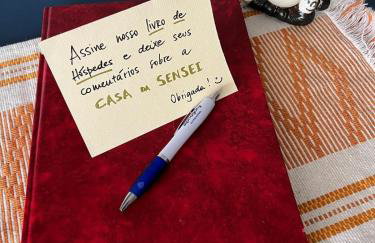 Assine nosso livro de
Hóspedes e deixe seus
comentários sobre a
CASA DA SENSEI
Obrigada! :)